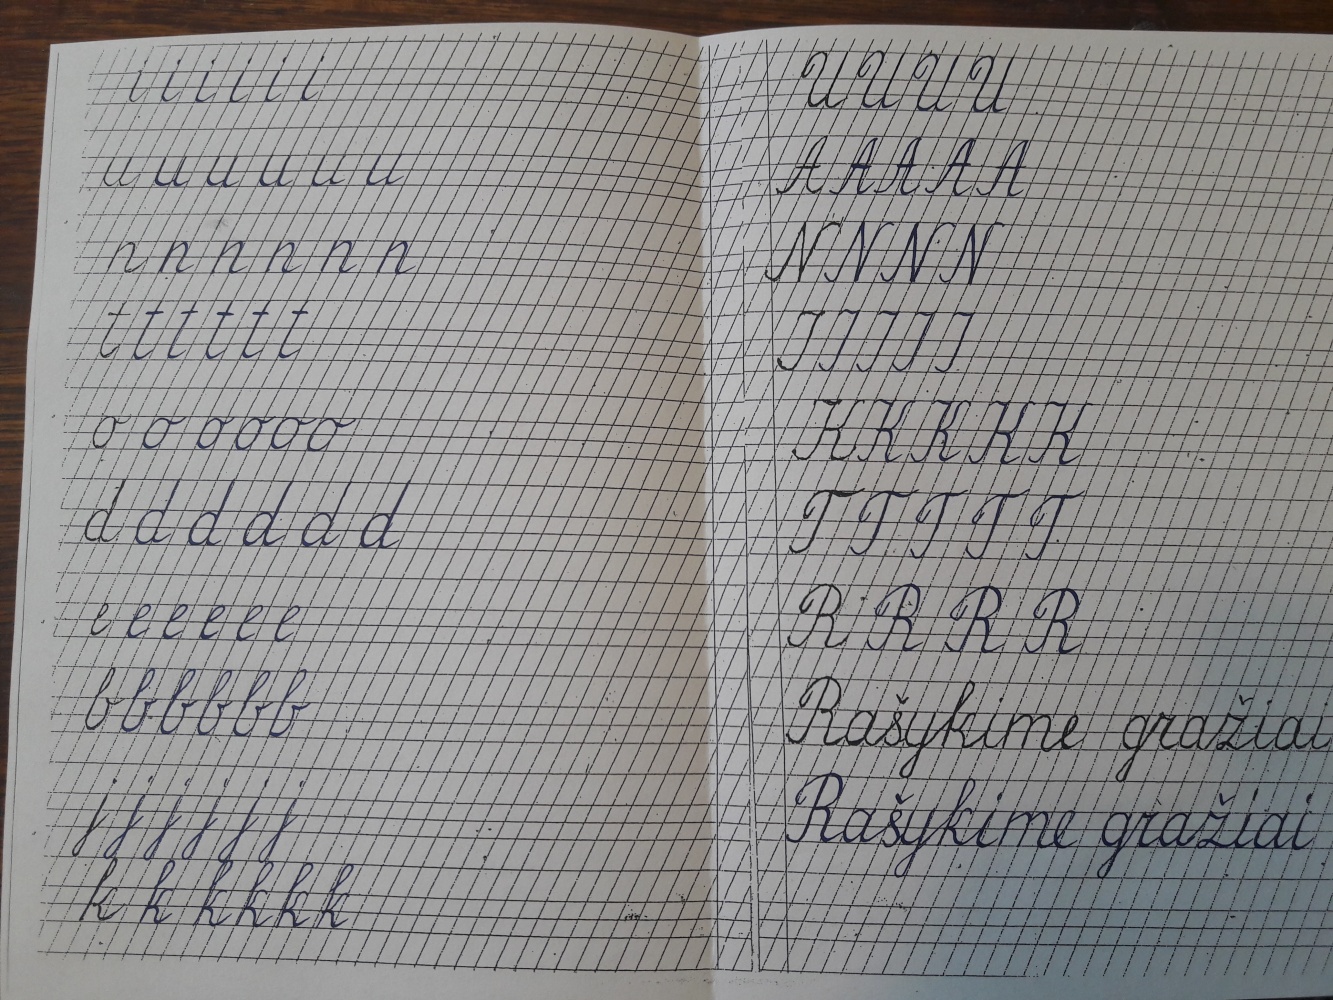 i i i i i i
u u u u u u
n n n n n n
t t t t t t
o o o o o o
d d d d d d
e e e e e e
b b b b b b
j j j j j j
k k k k k k
U U U U
A A A A A
N N N N
I I I I I
K K K K K
T T T T T
R R R R
Rašykime gražiai
Rašykime gražiai